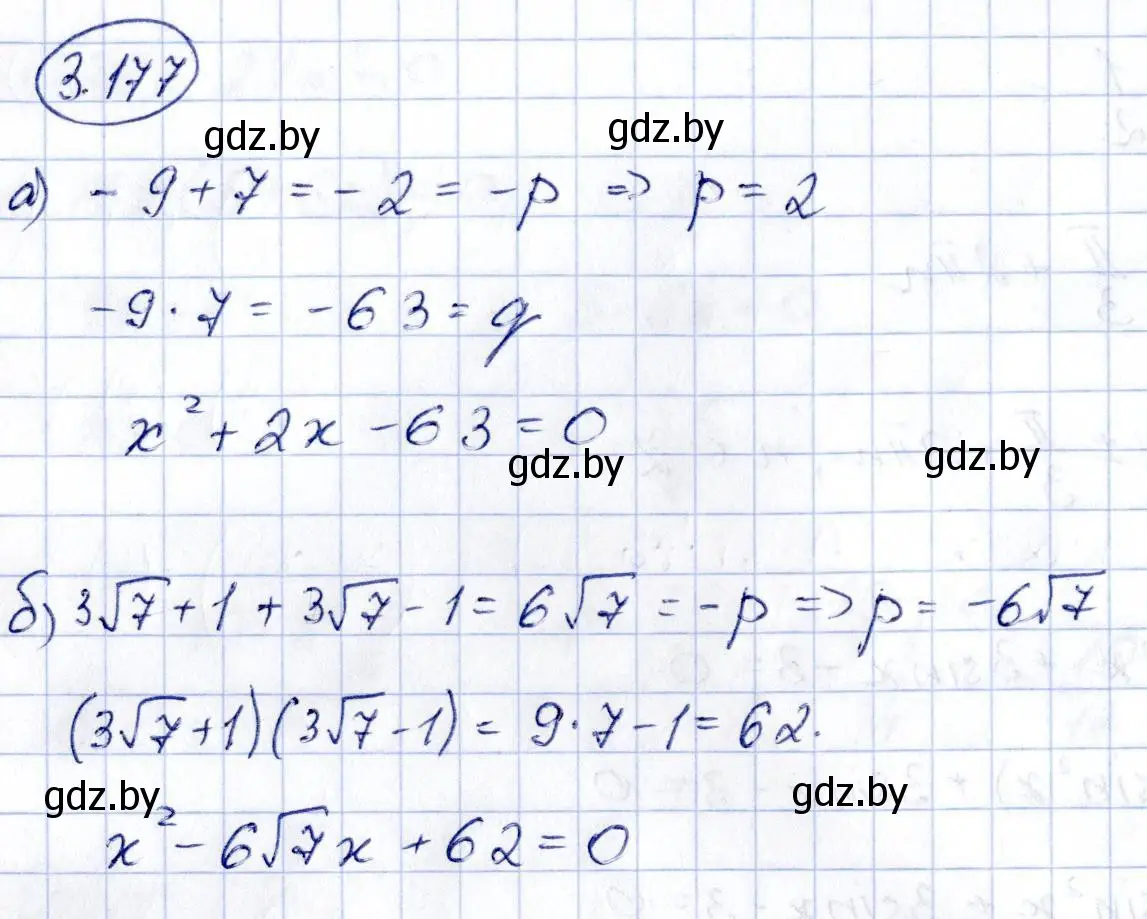 3.177
gdz.by gdz.by
а) - 9 + 7 = - 2 = - p => p = 2
- 9 · 7 = - 63 = q
x² + 2x - 63 = 0
gdz.by gdz.by
б) 3√7 + 1 + 3√7 - 1 = 6√7 = - p => p = - 6√7
(3√7 + 1)(3√7 - 1) = 9 · 7 - 1 = 62.
gdz.by gdz.by
x² - 6√7x + 62 = 0